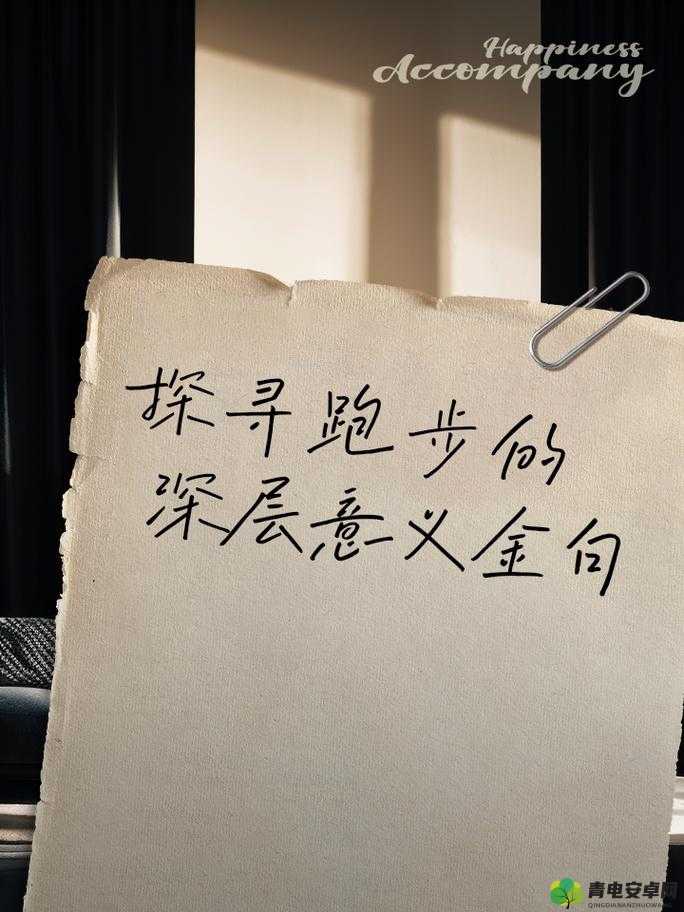 Happiness
Accompany
探寻跑步的
深层意义金句
青电安卓网
QINGDIANANZHUOWANG